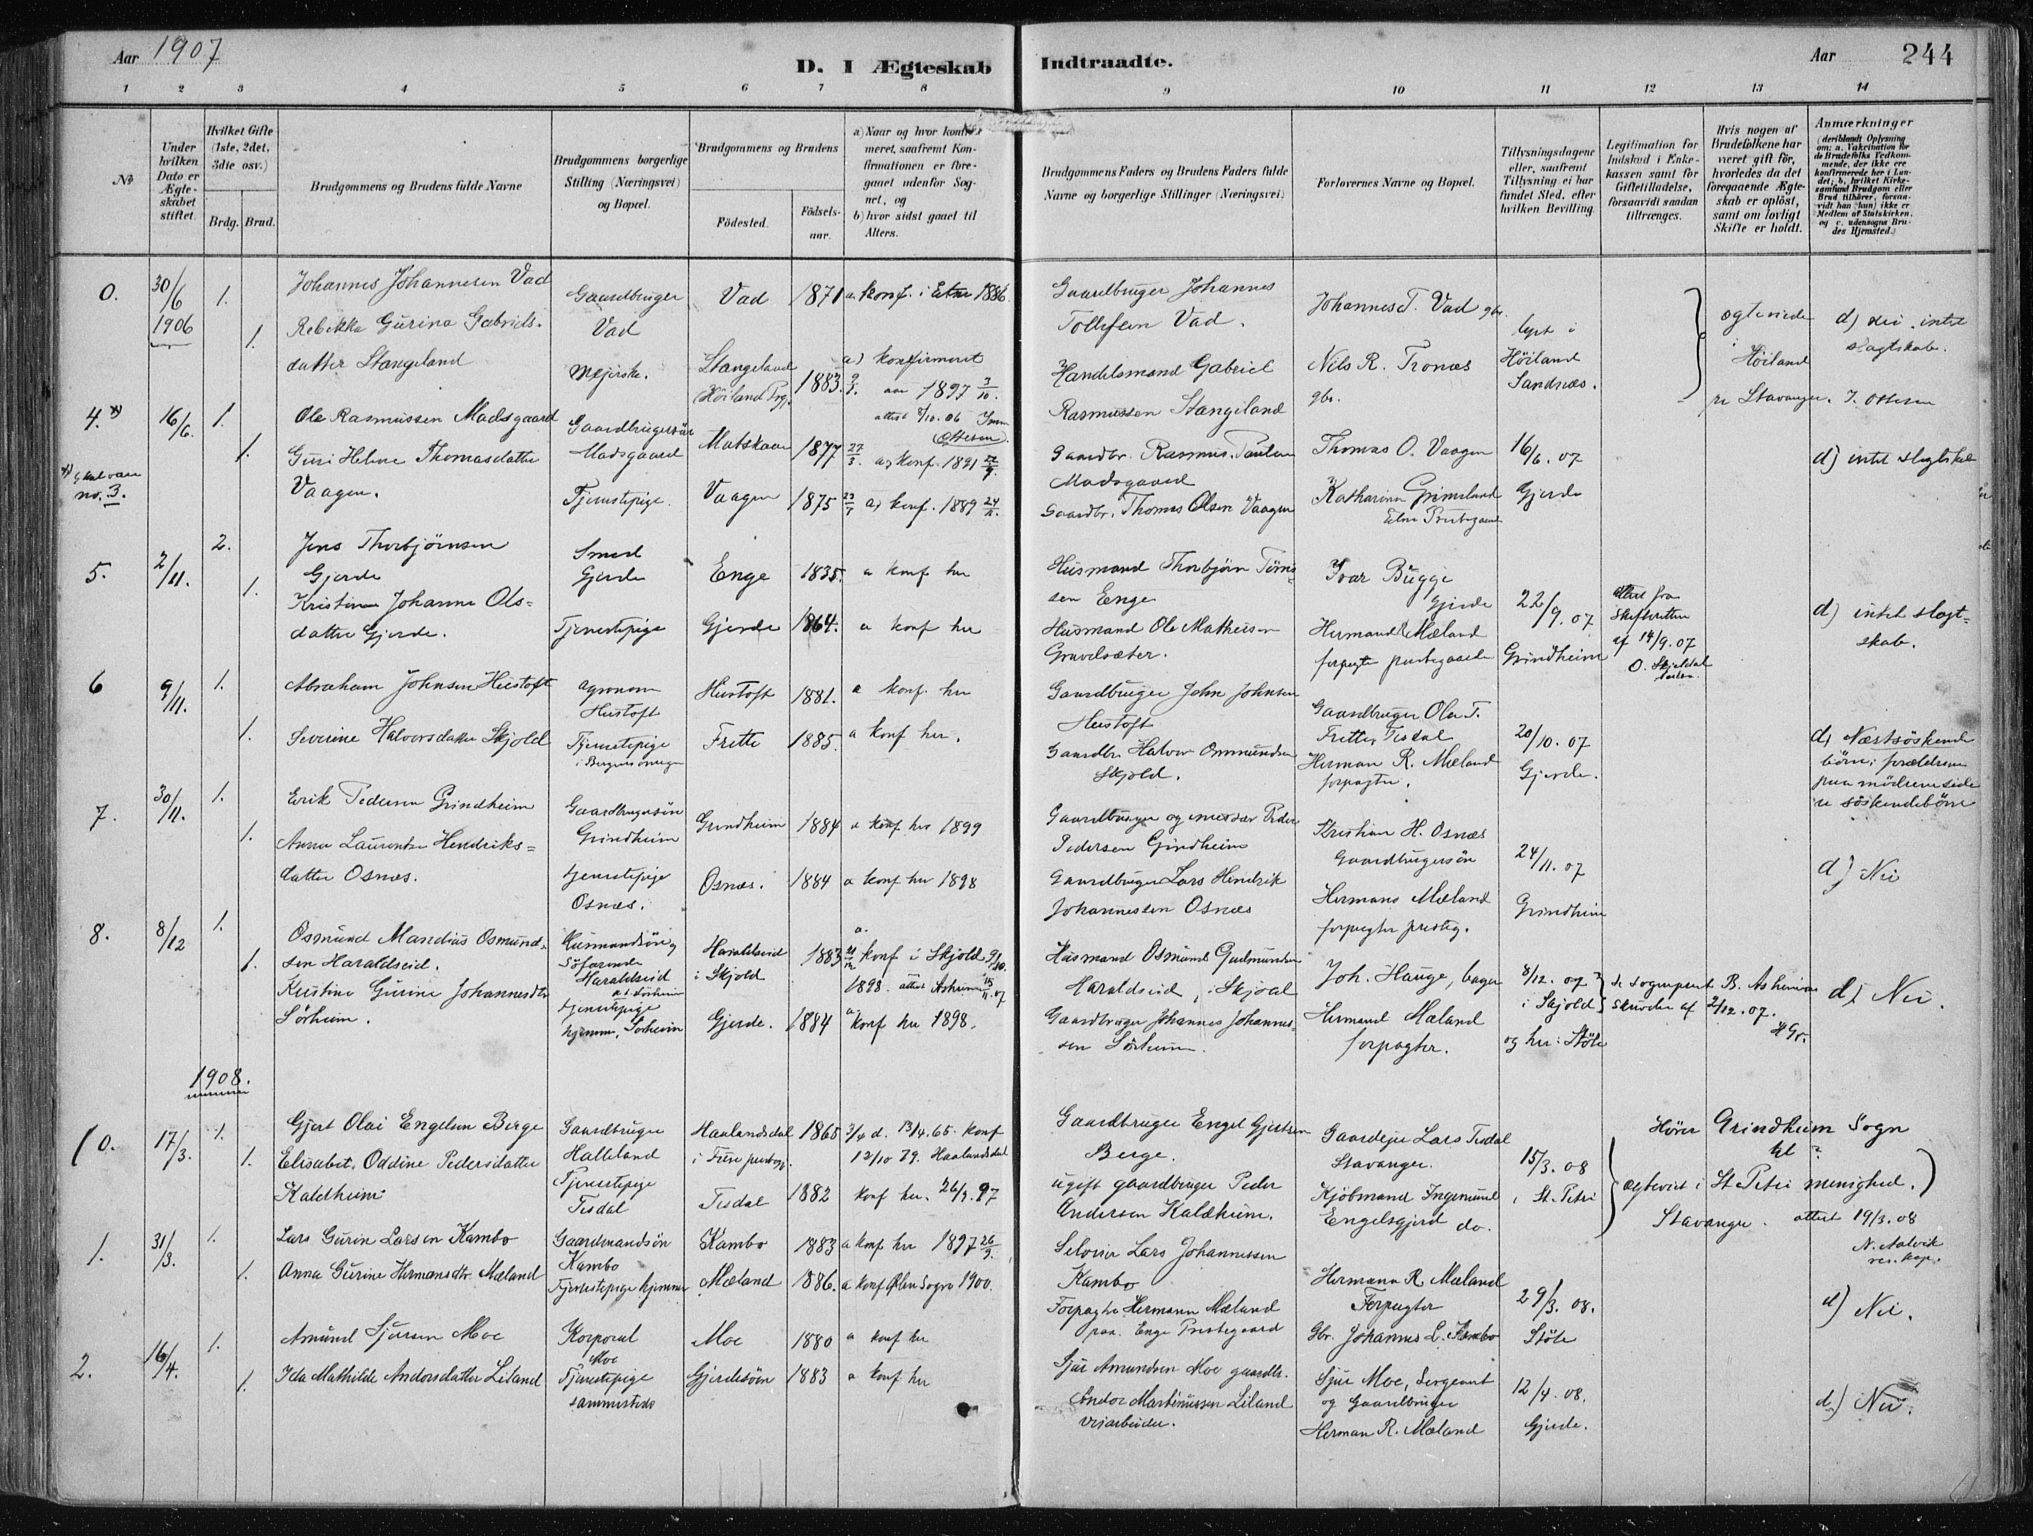 Aar 1907
D. I Ægteskab Indtraadte.
Aar 244
1 2 3 4 5 6 7 8 9 10 11 12 13 14
No
Under hvilken Dato er Ægteskabet stiftet.
Hvilket Gifte (1ste, 2det, 3die osv.)
Brdg. Brud.
Brudgommens og Brudens fulde Navne
Brudgommens borgerlige Stilling (Næringsvei) og Bopæl.
Brudgommens og Brudens
Fødested.
Fødselsaar.
a) Naar og hvor konfirmeret, saafremt Konfirmationen er foregaaet udenfor Sognet, og
b) hvor sidst gaaet til Alters.
Brudgommens Faders og Brudens Faders fulde Navne og borgerlige Stillinger (Næringsvei)
Forlovernes Navne og Bopæl.
Tillysningsdagene eller, saafremt Tillysning ei har fundet Sted, efter hvilken Bevilling.
Legitimation for Indskud i Enkekassen samt for Giftetilladelse, forsaavidt saadan tiltrænges.
Hvis nogen af Brudefolkene har været gift før, hvorledes da det foregaaende Ægteskab er opløst, samt om lovligt Skifte er holdt.
Anmærkninger
0. 30/6 1906 1. Johannes Johannesen Vad Gaardbruger Vad Vad 1871 a konf. i Etne 1886 Gaardbruger Johannes Tollefsen Vad. Johannes T. Vad gbr.
1. Rebekka Gurina Gabrielsdatter Stangeland Mejerske. Stangeland Høiland Prg. 1883 9/3. a) konfirmeret 1897 3/10. Handelsmand Gabriel Rasmussen Stangeland Nils R. Tronæs gbr. lyst i Høiland Sandnæs. ægteviede i Høiland pr Stavanger. d) nei. intet slagtskab. J. Ottesen
4. 16/6. 1. Ole Rasmussen Madsgaard Gaardbrugersøn Madsgaard Matskaar 1877 27/3 a) konf. 1891 Gaardbr. Rasmus Paulsen Madsgaard Thomas O. Vaagen 16/6. 07 d) intet slegtskab
skal være no. 3.
1. Guri Helene Thomasdatter Vaagen. Tjenestepige. Vaagen 1875 a) konf. 1889 Gaardbr. Thomas Olsen Vaagen Katharina Grimsland Etne Prestegaard Gjerde
5. 2/11. 2. Jens Thorbjørnsen Gjerde Smed Gjerde Enge 1835. a konf her Husmand Thorbjørn Enge Ivar Bugge Gjerde 22/9. 07 attest fra Skifteretten af 14/9. 07 O. Skjeldal
1. Kristine Johanne Olsdatter Gjerde. Tjenestepige Gjerde 1864. a konf her Husmand Ole Mathiesen Gravelsæter. Herman R Mæland forpagter prestegaard Grindheim d) intet slegtskab.
6 9/11. 1. Abraham Johnsen Hustoft Agronom Hustoft Hustoft 1881. a konf. her Gaardbruger John Johnsen Hustoft Gaardbruger Ole T. Frette, Tesdal 20/10. 07
1. Severine Halvorsdatter Skjold Tjenestepige i Frette 1885. a konf her. Gaardbr Halvor Ommundsen Skjold. Herman R. Mæland forpagter. Gjerde. d) Næstsøskendebørn; forældrene paa mødrene side er søskendebørn
7. 30/11. 1. Erik Pedersen Grindheim Gaardbrugersøn Grindheim Grindheim 1884 a konf her 1899 Gaardbruger og Peder Pedersen Grindheim Kristian H. Osnæs Gaardbrugersøn 24/11. 07
1. Anna Laurentze Hendriksdatter Osnæs. tjenestepige Osnæs. Osnæs. 1884 a konf her 1898 Gaardbruger Lars Hendrik Johannessen Osnæs Hermans Mæland forpagter prestg. Grindheim d) Nei
8. 8/12 1. Osmund Mandius Osmundsen Haraldseid. Husmandsøn og Søfarende Haraldseid Haraldseid i Skjold 1883 a. konf i Skjold 9/10. 1898. attest Asheim 15/11. 07 Husmand Osmund Gudmundsen Haraldseid, i Skjold Joh. Hauge, bager 8/12. 07 i Skjold se sogneprest B. Asheims skrivelse af 2/12. 07. d) Nei.
1. Kristine Gurine Johannesdtr Sørheim. tjenestepige hjemme, Sørheim Gjerde. 1884 a konf her 1898. Gaardbruger Johannes Johannessen Sørheim. Hermand Mæland forpagter. og her: Støle
1908.
0. 17/3. 1. Gjert Olai Engelsen Berge Gaardbruger Halleland Haalandsdal i Fuse prestegj. 1865 3/4 d. 13/4. 65. konf 12/10 79. Haalandsdal Gaardbruger Engel Gjertsen Berge. Gaardejer Lars Tesdal Stavanger. 15/3. 08 Hører Grindheim Sogn til?
1. Elisabet Oddine Pedersdatter Kaldheim Tjenestepige Tesdal Tesdal 1882 konf her. 26/9. 97 ugift gaardbruger Peder Andersen Kaldheim. Kjøbmand Ingemund Engelsgjerd do. i St. Petri ægteviet i St Petri menighed. Stavanger. attest 19/3. 08 N. Aalvik res. kap.
1. 31/3. 1. Lars Gurin Larsen Kambo Gaardmandsøn Kambo Kambo 1883 a konf her 1897 26/9. Selveier Lars Johannessen Kambo Hermann R. Mæland Forpagter 29/3. 08.
1. Anna Gurine Hermansdtr. Mæland Tjenestepige hjemme Mæland 1886. a konf Ølen Sogn 1900. Forpagter Hermann Mæland paa Enge Prestegaard Gbr. Johannes L. Kambo Støle d) Nei.
2. 16/4. 1. Amund Sjursen Moe Korporal Moe Moe 1880 a konf her Sjur Amundsen Moe gaardbr. Sjur Moe, Sergeant og Gaardbruger 12/4. 08.
1. Ida Mathilde Andorsdatter Liland Tjenestepige sammesteds 1883 a konf her Andor Martinussen Liland veiarbeider. Herman R. Mæland Gjerde. d) Nei.